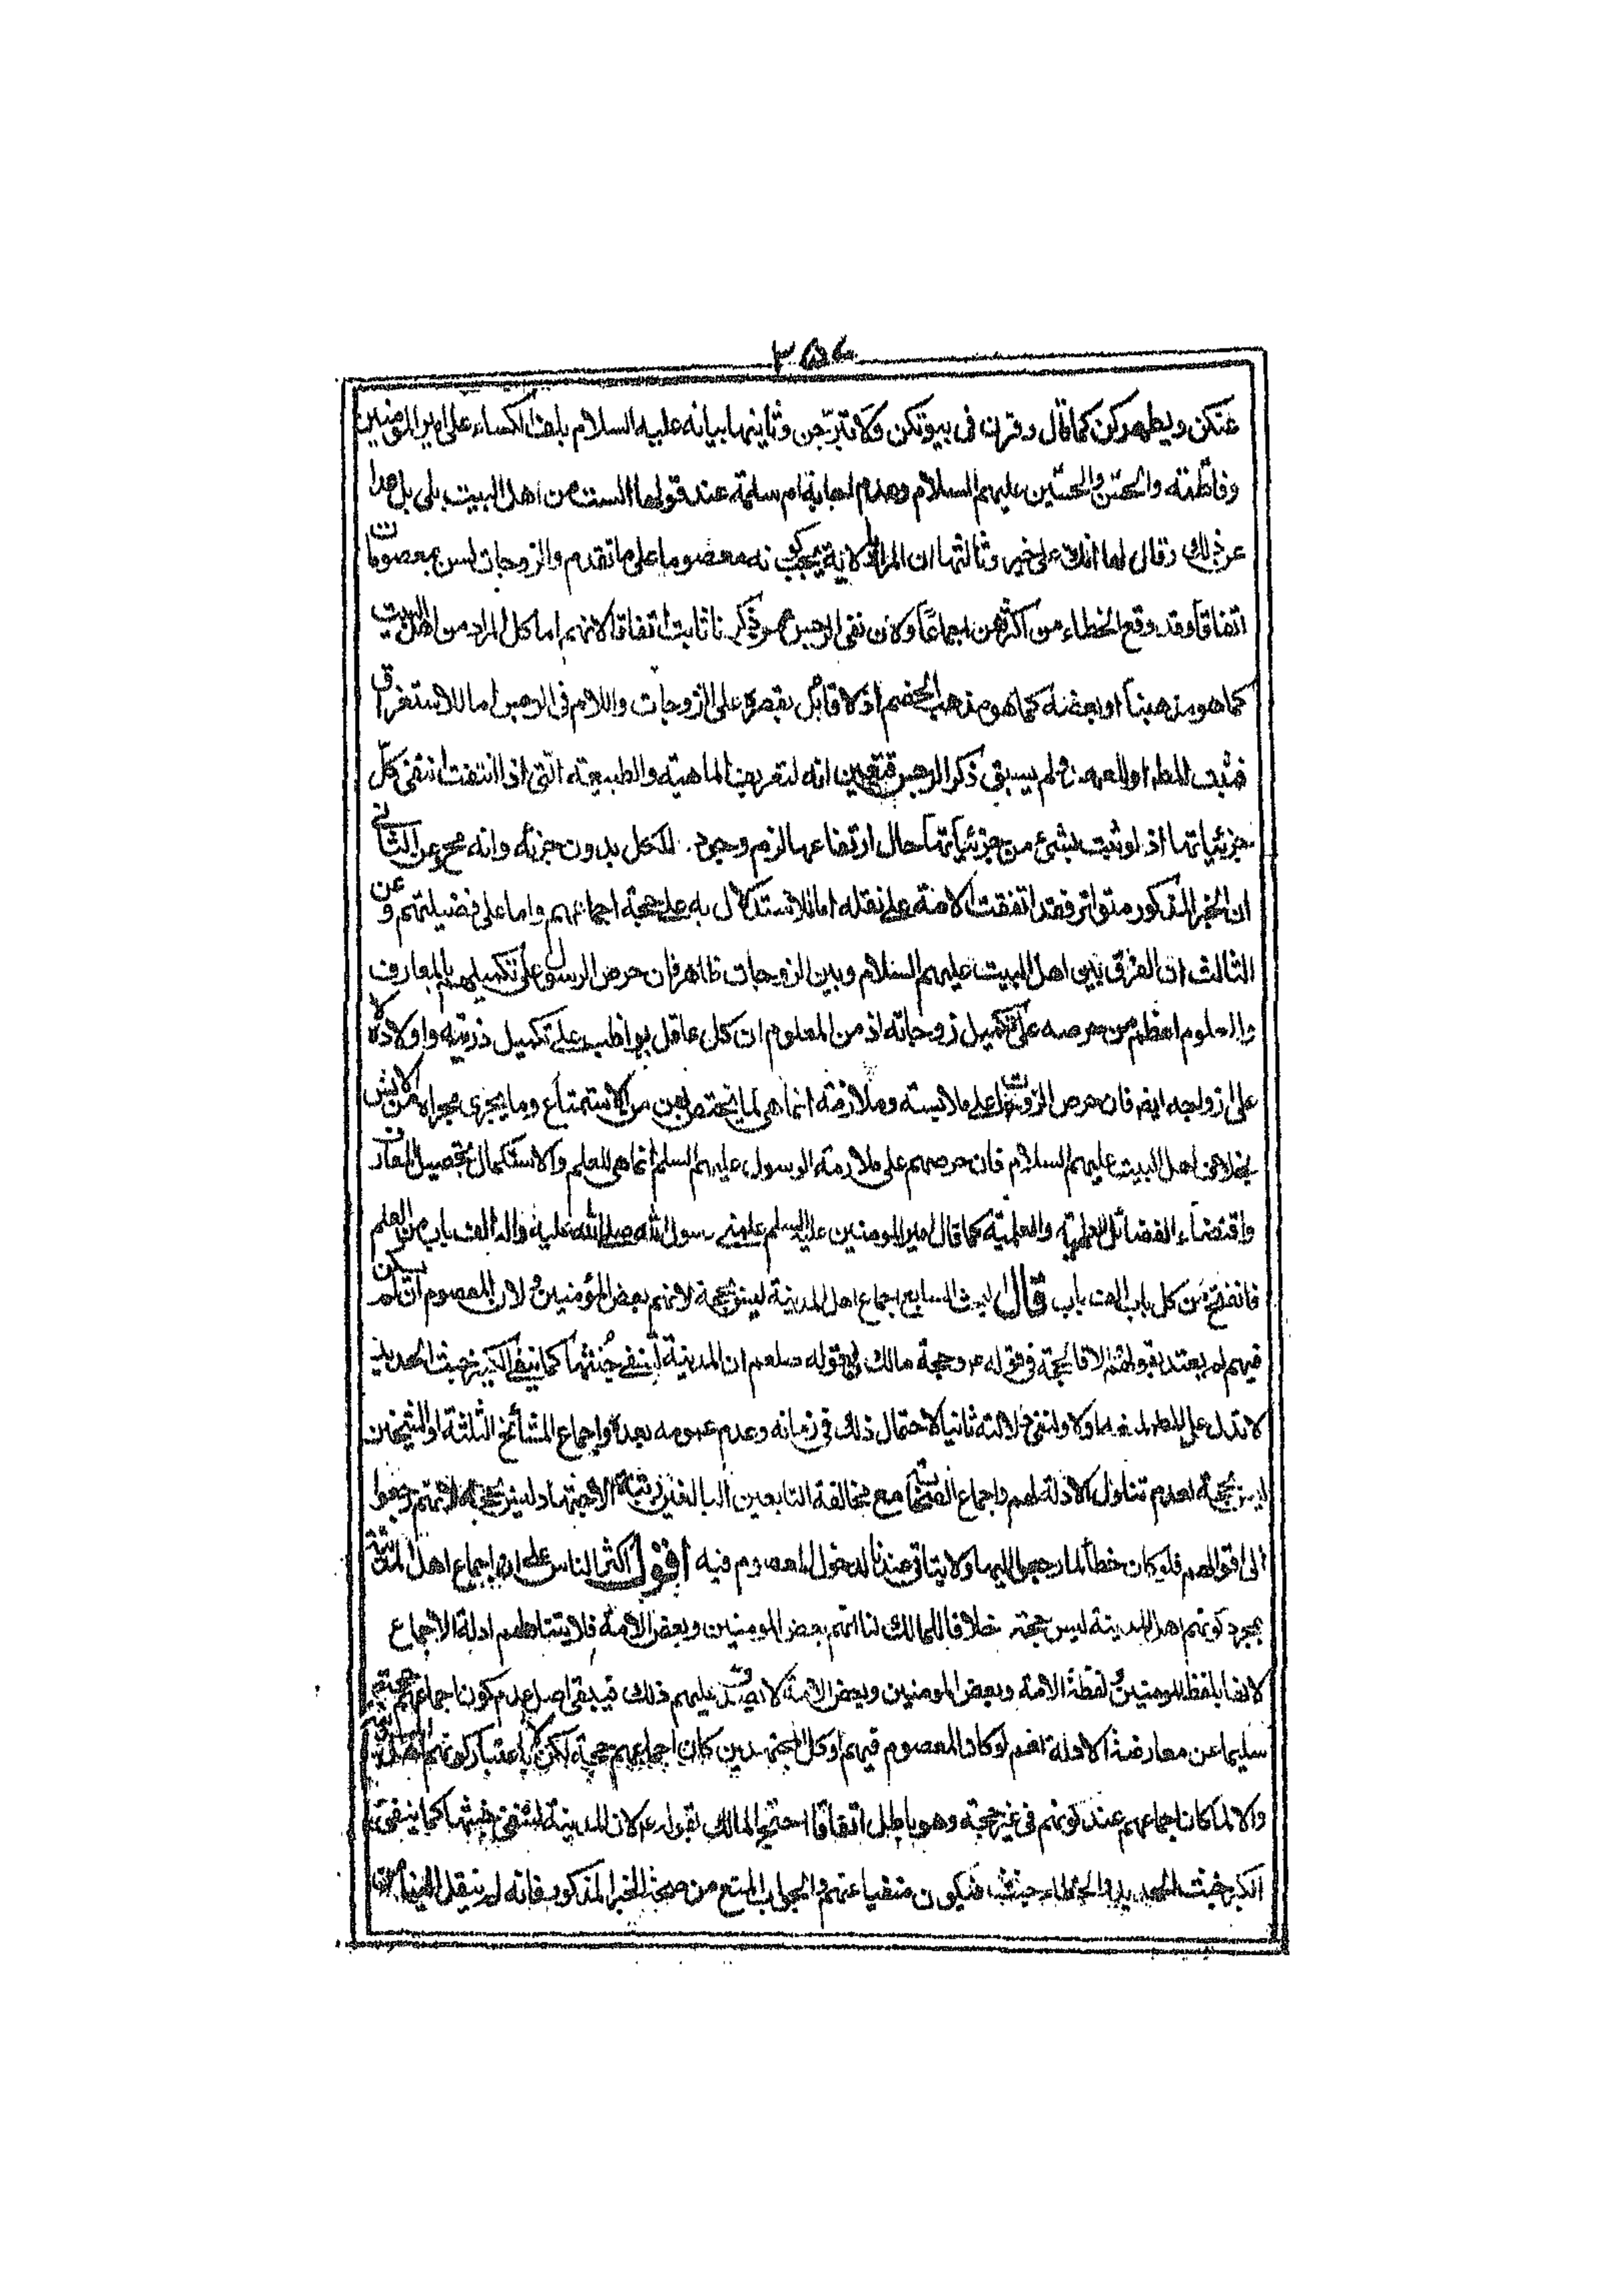 ٣٥٤
عنكن ويطهركن كما قال وقرن فى بيوتكن ولا تبرجن وثانيها بيانه عليه السلام بلف الكساء على امير المومنين
وفاطمة والحسن والحسين عليهم السلام وعدم اجابة ام سلمة عند قولها الست من اهل البيت بلى بل
عن ذلك وقال لها انك على خير وثالثها ان المراد لاية يجب كونه معصوما على ما تقدم والزوجات لسن بمعصومات
اتفاقا وقد وقع الخطاء من اكثرهن اجماعا ولان نفى الرجس عمن ذكرنا ثابت اتفاقا لانهم اما كل المراد من اهل البيت
كما هو مذهبنا او بعضه كما هو مذهب الخصم اذ لا قائل بقصره على الزوجات واللام فى الرجس اما للاستغراق
فثبت المط او للعهد ولم يسبق ذكر الرجس فتعين انه لتعريف الماهية والطبيعة التى اذا انتفت انتفى كل
جزئياتها اذ لو ثبت شئ من جزئياتها حال ارتفاعها لزم وجود الكل بدون جزئه وانه مح وعن الثانى
ان الخبر المذكور متواتر فقد اتفقت الامة على نقله اما للاستدلال به على حجة اجماعهم واما على فضيلتهم وعن
الثالث ان الفرق بين اهل البيت عليهم السلام وبين الزوجات ظاهر فان حرص الرسول على تكميلهم بالمعارف
والعلوم اعظم من حرصه على تكميل زوجاته اذ من المعلوم ان كل عاقل يواظب على تكميل ذريته واولاده لا
على ازواجه ايضا فان حرص الزوجات على ملابسته وملازمته انما هى لما يختص بهن من الاستمتاع وما يجرى مجراه من
بخلاف اهل البيت عليهم السلام فان حرصهم على ملازمة الرسول عليهم السلم انما هى للعلم والاستكمال بتحصيل المعارف
واقتضاء الفضائل العلمية والعملية كما قال امير المومنين عليه السلم علمنى رسول الله صلى الله عليه واله الف باب من العلم
فانفتح من كل باب الف باب قال البحث السابع اجماع اهل المدينة ليس بحجة لانهم بعض المؤمنين ولان المعصوم ان لم يكن
فيهم لم يعتد بقولهم والا فالحجة فى قوله وحجة مالك قوله صلعم ان المدينة لتنفى خبثها كما ينفى الكير خبث الحديد
لا تدل على المط اولا ولنفى دلالته ثانيا لاحتمال ذلك فى زمانه وعدم عمومه بعده واجماع المشائخ الثلثة او الشيخين
ليس بحجة لعدم تناول الادلة لهم واجماع الصحابة مع مخالفة التابعين البالغين رتبة الاجتهاد ليس بحجة لانهم رجعوا
الى اقوالهم فلو كان خطأ لما رجعوا اليها ولا يتاتى عندنا لدخول المعصوم فيه اقول اكثر الناس على ان اجماع اهل المدينة
بمجرد كونهم اهل المدينة ليس حجة خلافا لمالك لنا انهم بعض المومنين وبعض الامة فلا يتناولهم ادلة الاجماع
لانها بلفظ المومنين ولفظة الامة وبعض المومنين وبعض الامة لا يصدق عليهم ذلك فيبقى اصل عدم كون اجماعهم حجة
سليما عن معارضة الادلة نعم لو كان المعصوم فيهم او كل المجتهدين كان اجماعهم حجة لكن لا باعتبار كونهم اهل المدينة
والا لما كان اجماعهم عند كونهم فى غيرها حجة وهو باطل اتفاقا احتج المالك بقوله ع لان المدينة لتنفى خبثها كما ينفى
الكير خبث الحديد والخطاء خبث فيكون منفيا عنهم والجواب المنع من صحة الخبر المذكور فانه لم ينقل الينا